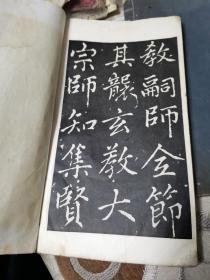 教嗣師全節
其襲玄教大
宗師知集賢